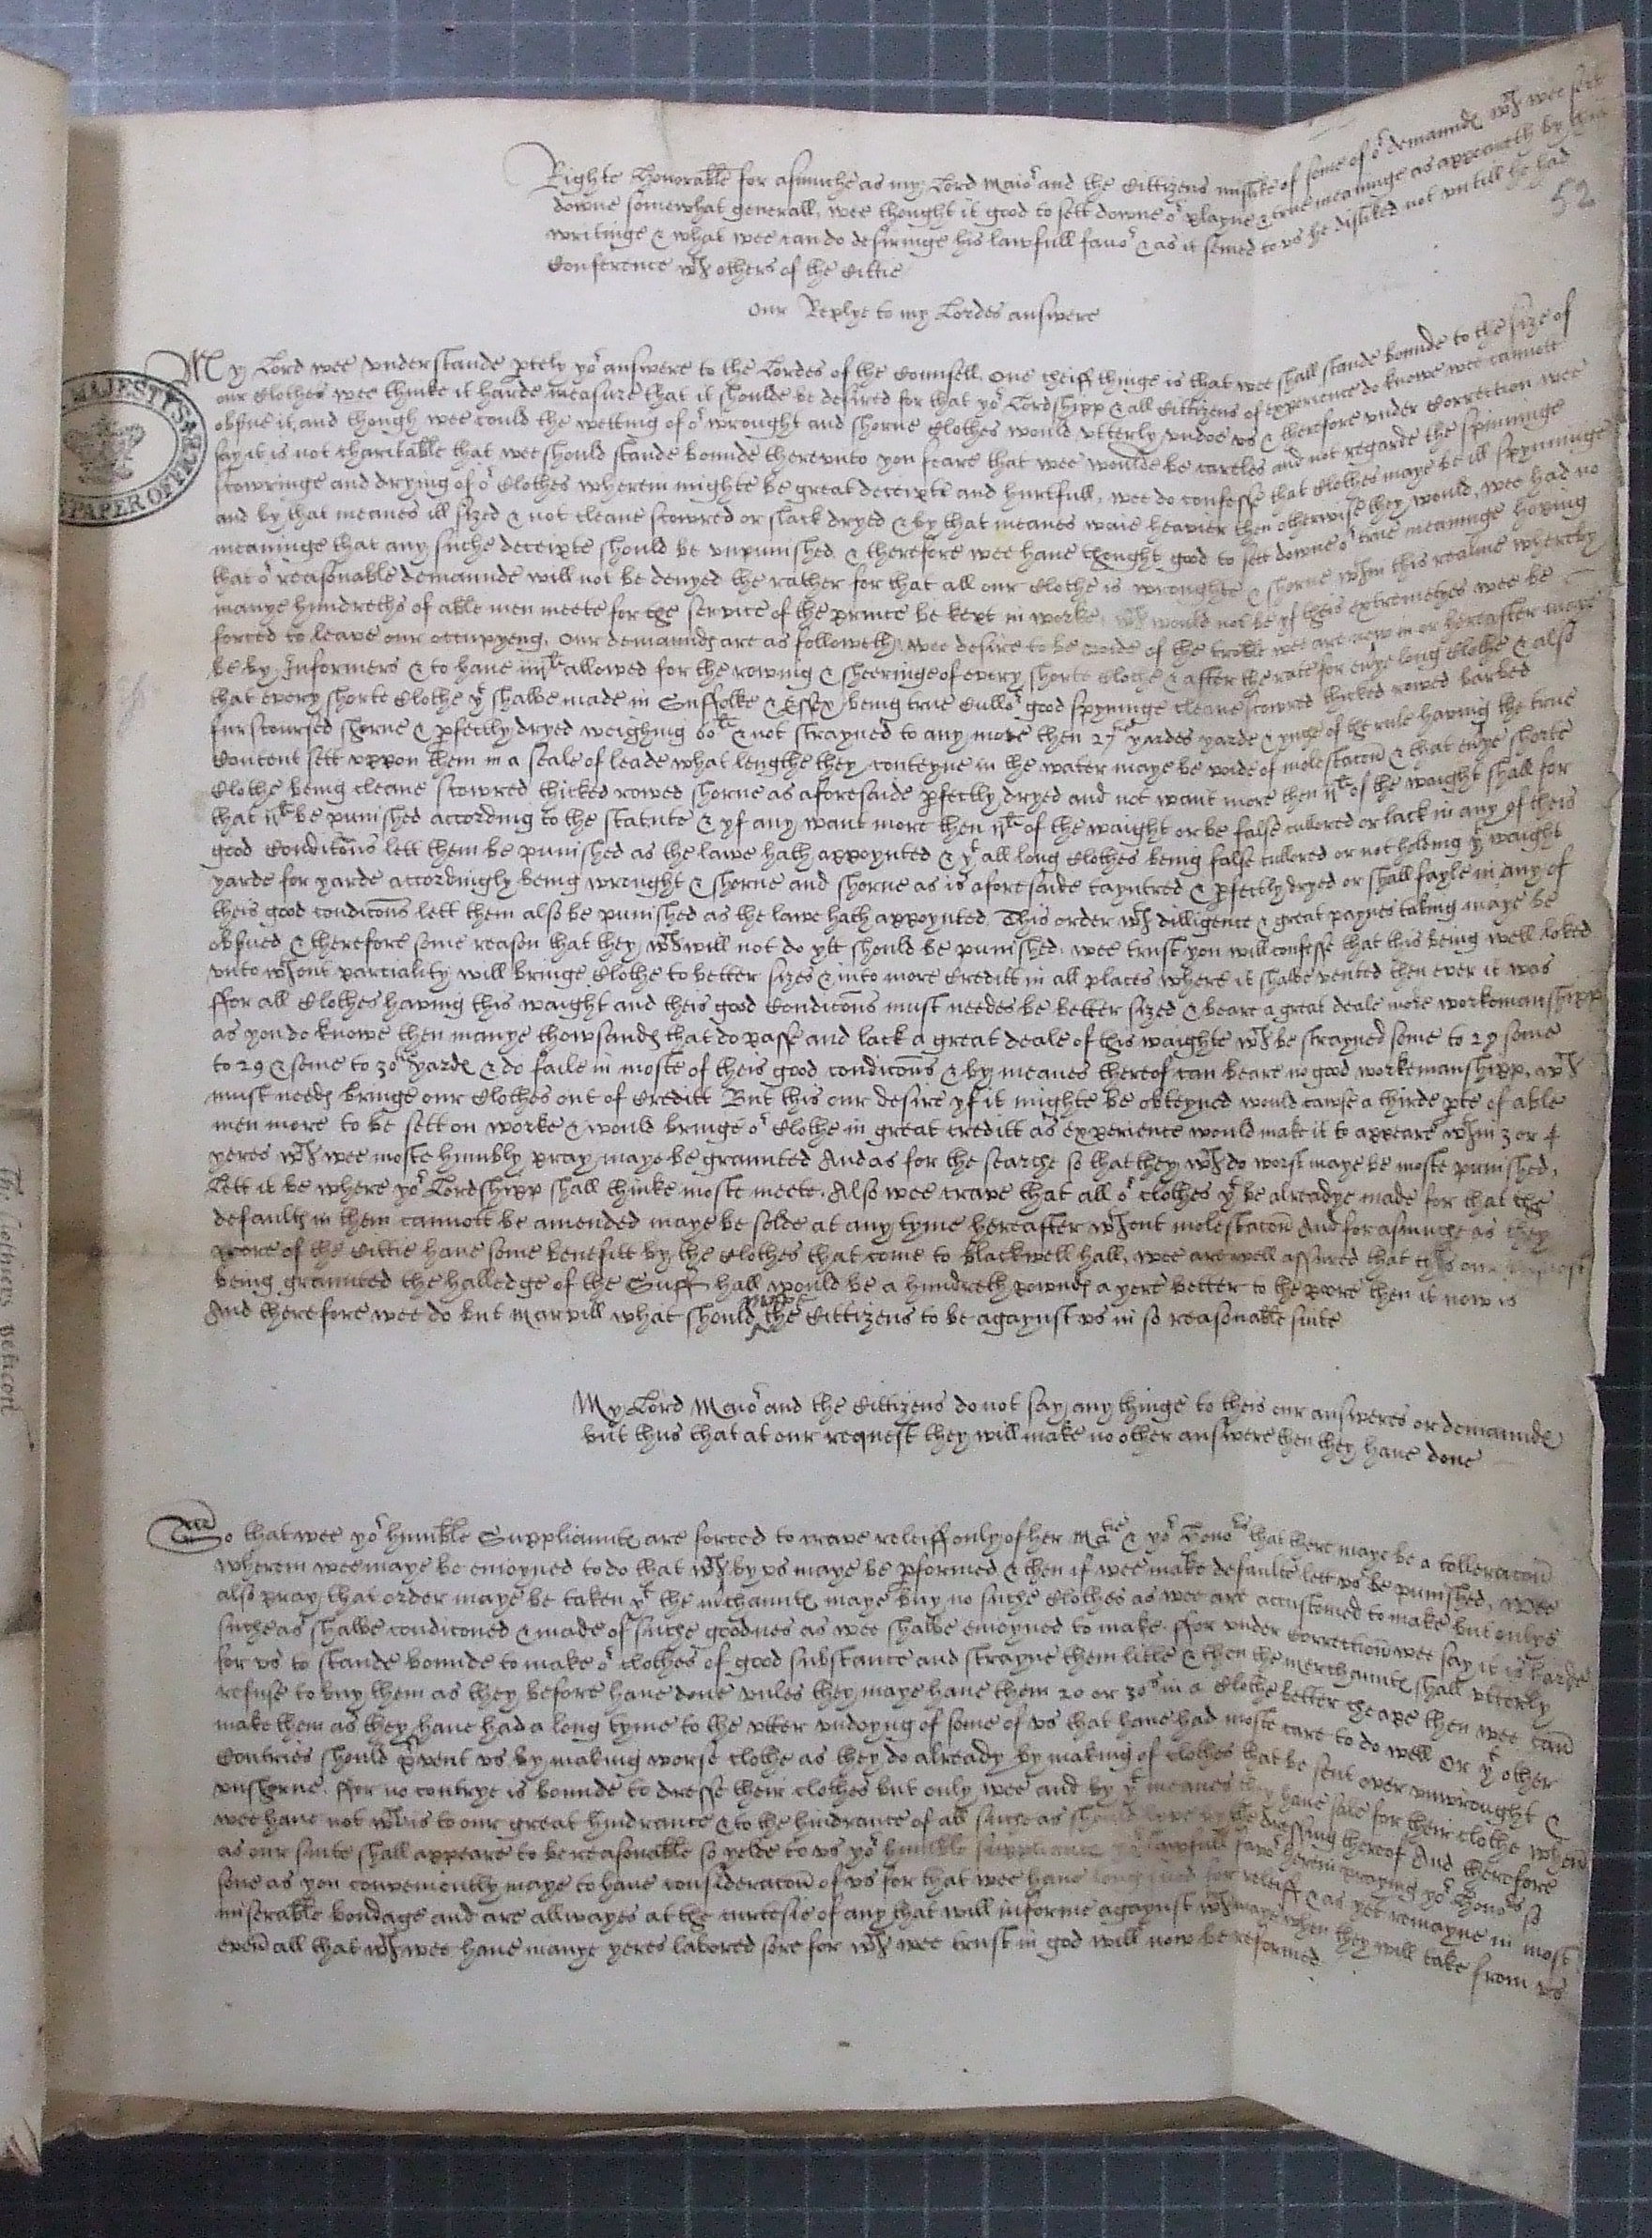 Righte Honorable for asmuche as my Lord Maior and the Cittizens mislike of some of or demaundes wch wee sett
downe somewhat generall, wee thought it good to sett downe or playne & true meaninge as appeareth by this
writinge & what wee can do desiringe his lawfull favor & as it semed to us he disliked not untill he had
Conference wth others of the Cittie
52
Our Replye to my Lordes answere
My Lord wee understande ptely yor answere to the Lordes of the Counsell. One cheiff thinge is that wee shall stande bounde to the size of
our Clothes wee thinke it harde measure that it shoulde be desired for that yor Lordshipp & all Cittizens of experience do knowe wee cannott
obserue it, and though wee could the wetting of or wrought and shorne Clothes would utterly undoe us & therefore under Correction wee
say it is not charitable that wee should stande bounde thereunto you feare that wee woulde be careles and not regarde the spinninge
scowringe and drying of or Clothes wherein mighte be great deceipte and hurtfull, wee do confesse that Clothes maye be ill spynninge
and by that meanes ill sized & not cleane scowred or slack dryed & by that meanes waie heavier then otherwise they would, wee had no
meaninge that any suche deceipte should be unpunished & therefore wee have thought good to sett downe or true meaninge hoping
that or reasonable demaunde will not be denyed the rather for that all our Clothe is wroughte & shorne wthin this realme whereby
manye hundreths of able men meete for the service of the prince be kept in worke, wch would not be yf theis extremetyes wee be
forced to leave our occupyeng. Our demaundes are as followeth, wee desire to be voide of the troble wee are now in or hereafter maye
be by Informers & to have iiijli allowed for the rowing & sheeringe of every shorte Clothe & after the rate for evrye long Clothe & also
that every shorte Clothe yt shalbe made in Suffolke & Essex being true Cullor good spyninge cleane scowred thicked rowed barbed
furscoursed shorne & pfectly dryed weighing 60li & not strayned to any more then 27tie yardes yarde & ynge of the rule having the true
Content sett uppon them in a seale of leade what lengthe they conteyne in the water maye be voide of molestacon & that evrye shorte
Clothe being cleane scowred thicked rowed shorne as aforesaide pfectly dryed and not want more then ijli of the waight shall for
that ijli be punished according to the statute & yf any want more then ijli of the waight or be false cullored or lack in any of theis
good Conditons lett them be punished as the lawe hath appoynted & yt all long Clothes being false cullored or not holding yt waight
yarde for yarde accordingly being wrought & shorne and shorne as is aforesaide tayntred & pfectly dryed or shall fayle in any of
theis good condicons lett them also be punished as the lawe hath appoynted. This order wth dilligence & great paynes taking maye be
obserued & therefore some reason that they wch will not do ytt should be punished. wee trust you will confesse that this being well loked
unto wthout partiality will bringe Clothe to better sizes & into more Creditt in all places where it shalbe vented then ever it was
ffor all Clothes having this waight and theis good Condicons must needes be better sized & beare a great deale more workemanshipp
as you do knowe then manye thowsandes that do passe and lack a great deale of this waighte wch be strayned some to 27 some
to 29 & some to 30tie yardes & do faile in moste of theis good condicons & by meanes thereof can beare no good workemanshipp, wch
must needes bringe our Clothes out of Creditt But this our desire yf it mighte be obteyned would cawse a thirde pte of able
men more to be sett on worke & would bringe or Clothe in great creditt as experience would make it to appeare wthin 3 or 4
yeres wch wee moste humbly pray maye be graunted And as for the searche so that they wch do worst maye be moste punished,
Lett it be where yor Lordshipp shall thinke moste meete. Also wee crave that all or clothes yt be alreadye made for that the
defaultes in them cannott be amended maye be solde at any tyme hereafter wthout molestacon And forasmuche as they
poore of the Cittie have some benefitt by the Clothes that come to Blackwell hall, wee are well assured that this our
being graunted the halledge of the Suff hall would be a hundreth poundes a yere better to the poore then it now is
And therefore wee do but marvill what should move the Cittizens to be agaynst us in so reasonable sute
My Lord Maior and the Cittizens do not say any thinge to theis our answeres or demaundes
but thus that at our request they will make no other answere then they have done
So that wee yor humble Suppliauntes are forced to crave releiff only of her Matie & yor Honors that there maye be a tolleracon
wherein wee maye be enioyned to do that wch by us maye be pformed & then if wee make defaulte lett us be punished, Wee
also pray that order maye be taken yt the mchauntes maye buy no suche Clothes as wee are accustomed to make but onlye
suche as shalbe condiconed & made of suche goodnes as wee shalbe enioyned to make. ffor under correction wee say it is harde
for us to stande bounde to make or clothes of good substance and strayne them litle & then the merchauntes shall utterly
refuse to buy them as they before have done unles they maye have them 20 or 30s in a Clothe better cheape then wee can
make them as they have had a long tyme to the utter undoyng of some of us that have had moste care to do well Or yt other
Contries should pvent us by making worse clothe as they do already by making of clothes that be sent over unwrought &
unshorne. ffor no contrye is bounde to dresse their clothes but only wee and by yt meanes they have sale for their clothe when
wee have not wch is to our great hindrance & to the hindrance of all suche as should live by the dressing thereof And therefore
as our suite shall appeare to be reasonable so yelde to us yor humble suppliauntes yor lawfull favor herein praying yor Honors so
sone as you conveniently maye to have consideracon of us for that wee have long sued for releiff & as yet remayne in most
miserable bondage and are allwayes at the curtesie of any that will informe agaynst wch maye when they will take from us
even all that wch wee have manye yeres labored sore for wch wee trust in god will now be reformed
MAJESTY'S
PAPER OFFICE
The Clothiers peticon